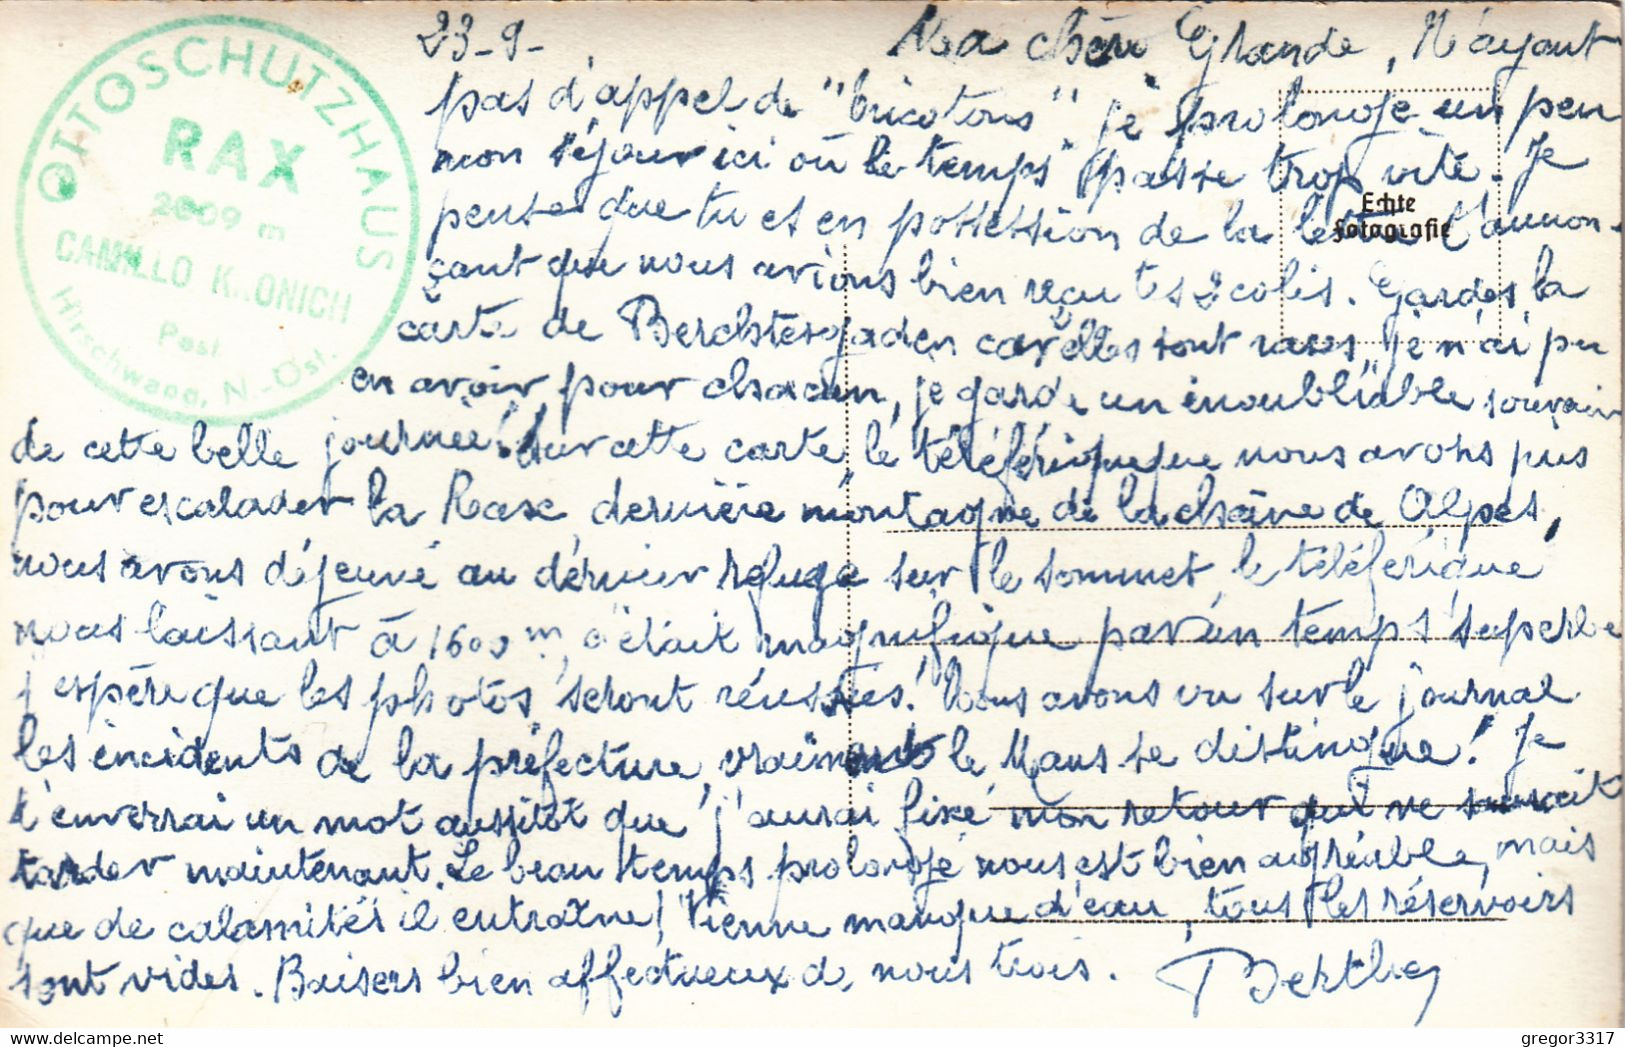 OTTOSCHUTZHAUS
RAX
2009 m
CAMILLO KRONICH
Post
Hirschwang, N.-Öst.
Echte
Fotografie
23-9- Ma chère Grande, N'ayant
pas d'appel de "bricotons" je prolonge un peu
mon séjour ici où le temps passe trop vite. Je
pense que tu es en possession de la lettre t'annon-
çant que nous avions bien reçu tes 2 colis. Gardes la
carte de Berchtesgaden car elles sont rares, je n'ai pu
en avoir pour chacun, je garde un inoubliable souvenir
de cette belle journée! Sur cette carte le téléférique que nous avons pris
pour escalader la Rax, dernière montagne de la chaîne de Alpes,
nous avons déjeuné au dernier refuge sur le sommet, le téléférique
nous laissant à 1600 m, c'était magnifique par un temps superbe
j'espère que les photos seront réussies! Nous avons vu sur le journal
les incidents de la préfecture, vraiment le Mans se distingue! Je
t'enverrai un mot aussitôt que j'aurai fixé mon retour qui ne saurait
tarder maintenant. Le beau temps prolongé nous est bien agréable, mais
que de calamités il entraîne! Vienne manque d'eau, tous les réservoirs
sont vides. Baisers bien affectueux de nous trois. Berthe
gregor3317